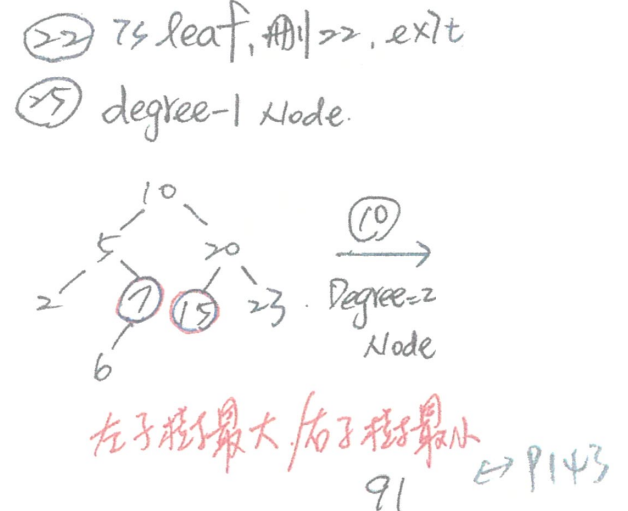 22 is leaf, 刪22, exit
25 degree-1 Node.
10
5 20
10
2 7 15 23
Degree=2
Node
6
左子樹最大/右子樹最小
91
↔ P143